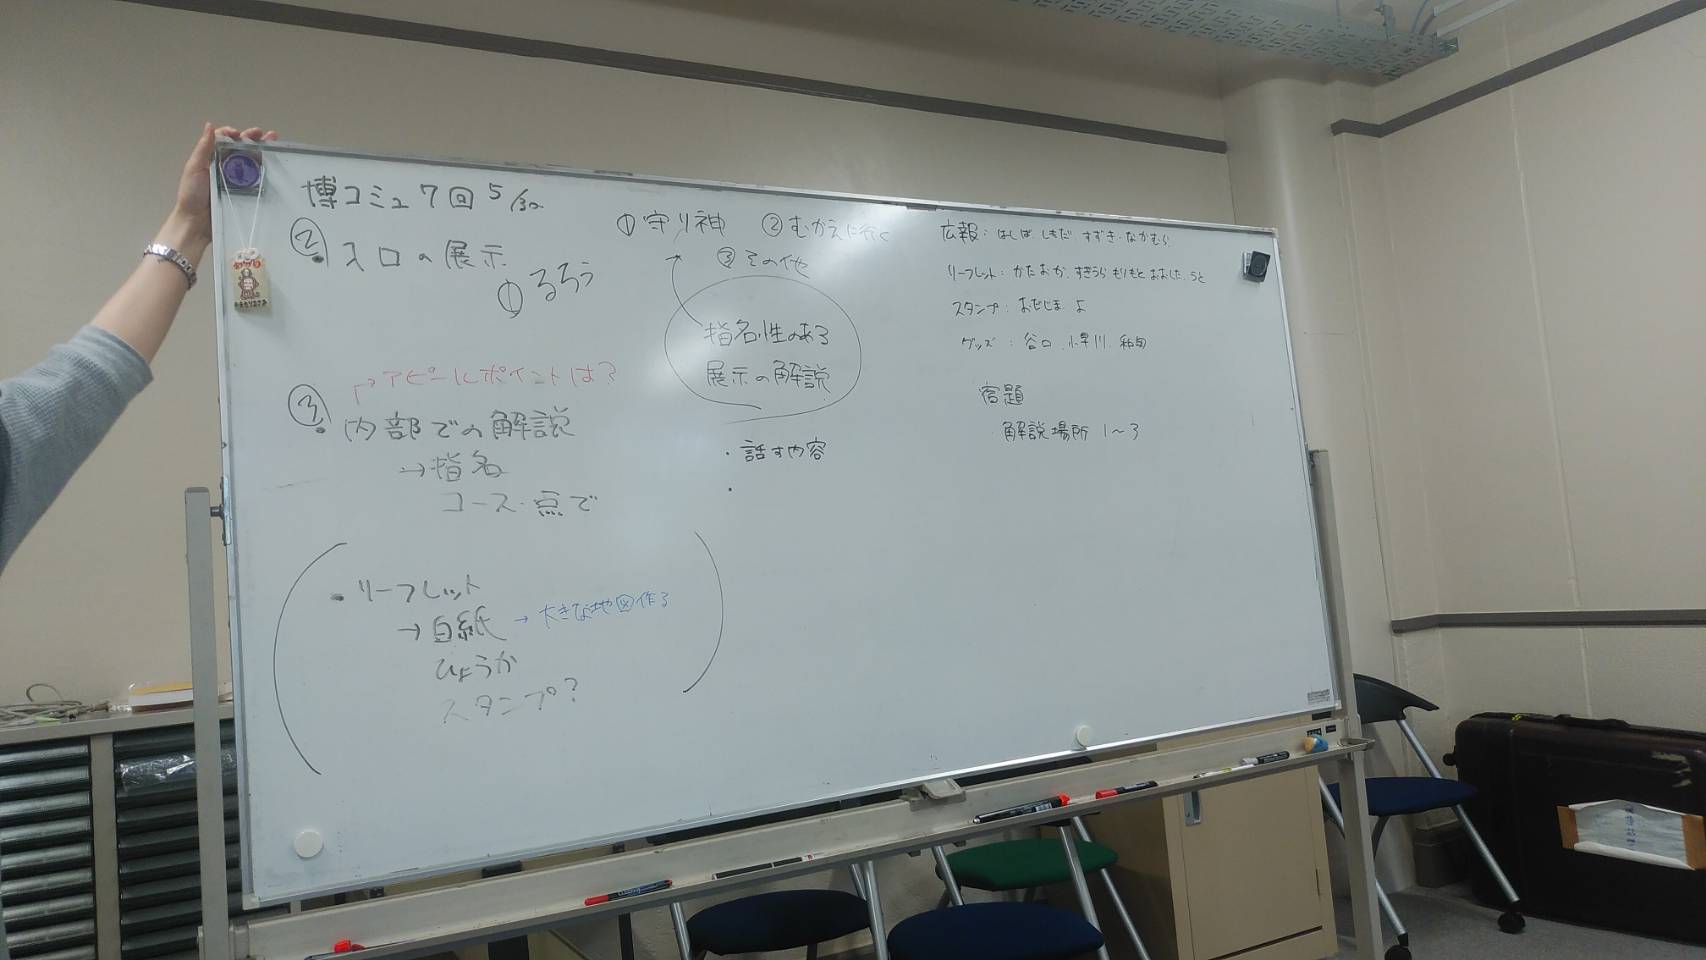 博コミュ 7回 5/30
② 入口の展示
① るろう
アピールポイントは?
③ 内部での解説
→指名
コース・点で
・リーフレット
→白紙 → 大きな地図作る
ひょうか
スタンプ?
①守り神 ②むかえに行く
③その他
指名性のある
展示の解説
・話す内容
・
広報:はしば しもだ すずき・なかむら
リーフレット:かたおか、すぎうら もりもと おおした、うと
スタンプ:おだじま よ
グッズ:谷口、小早川、
宿題
解説場所 1~3